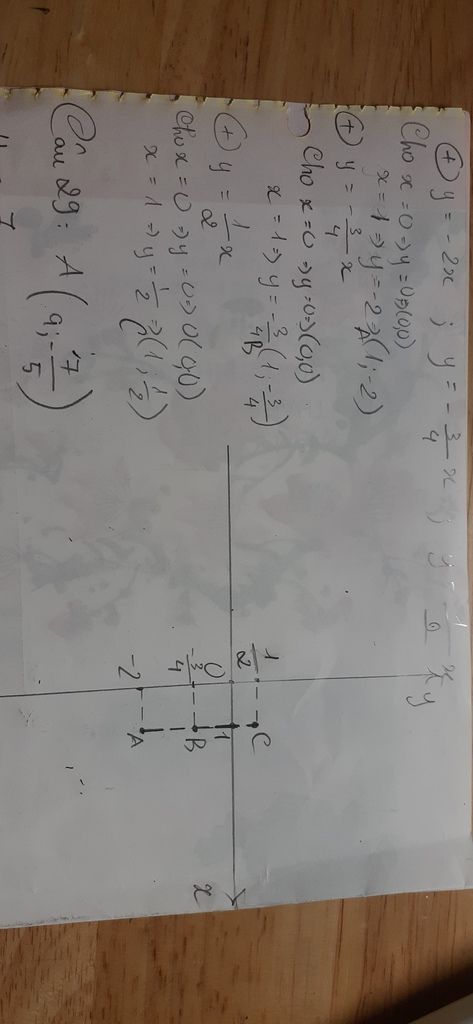 ⊕ y = -2x ; y = -3/4 x ; y
Cho x = 0 ⇒ y = 0 ⇒ (0,0)
x = 1 ⇒ y = -2 ⇒ A(1; -2)
⊕ y = -3/4 x
Cho x = 0 ⇒ y = 0 ⇒ (0,0)
x = 1 ⇒ y = -3/4 B(1; -3/4)
⊕ y = 1/2 x
Cho x = 0 ⇒ y = 0 ⇒ 0(0,0)
x = 1 ⇒ y = 1/2 ⇒ C(1; 1/2)
Câu 29: A(9; -7/5)
y
1/2
C
O
1
x
-3/4
B
-2
A